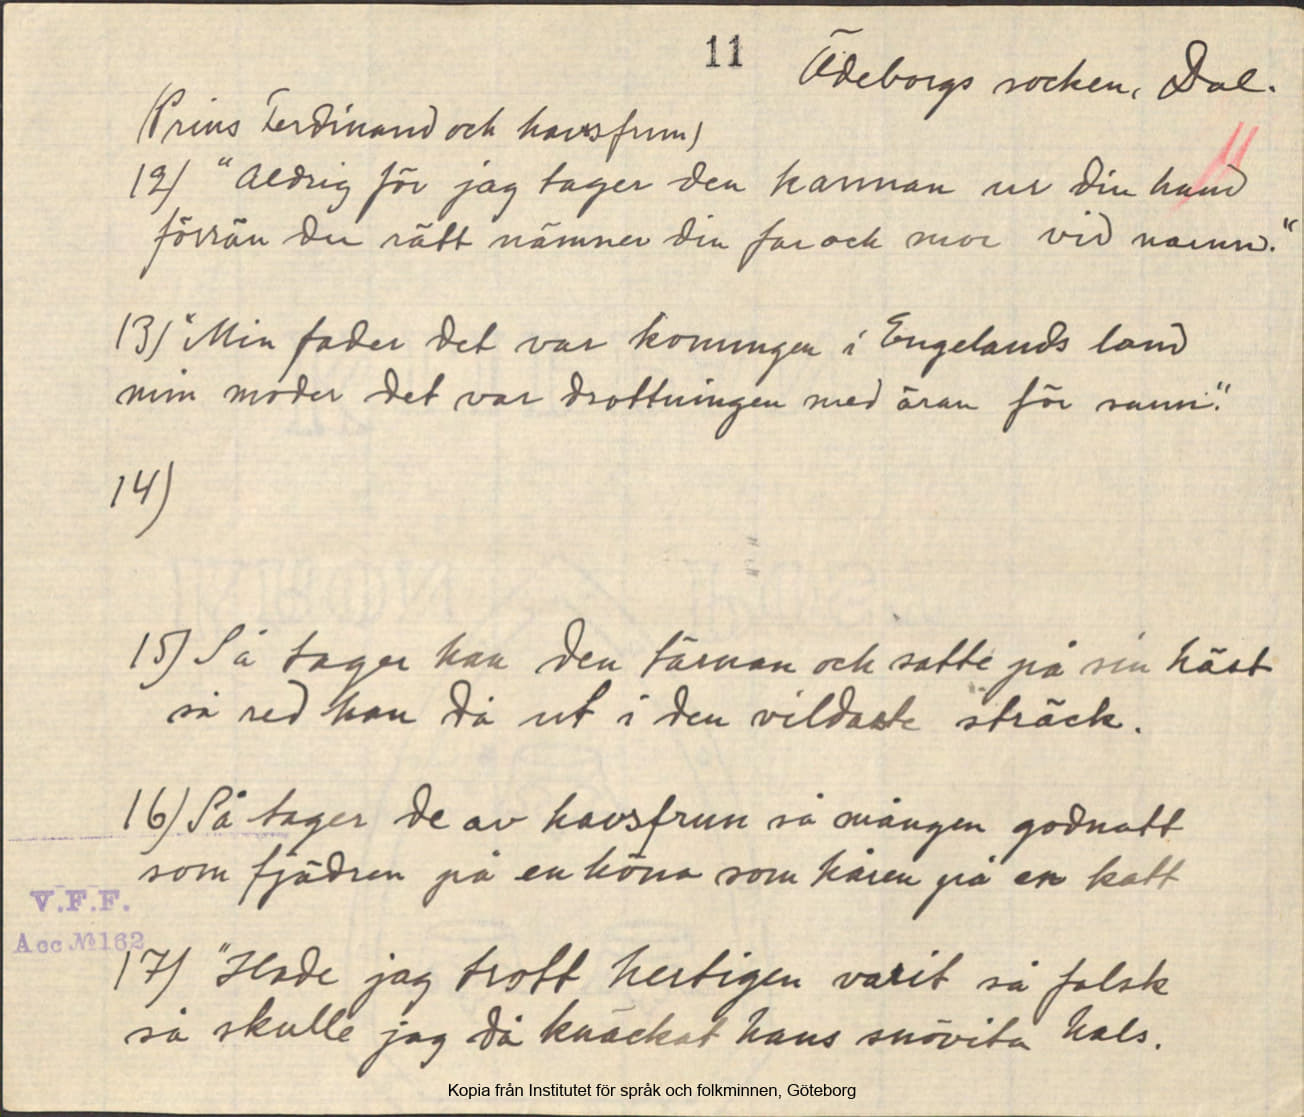 11
Ödeborgs socken, Dal.
(Prins Ferdinand och havsfrun)
12) "Aldrig för jag tager den kannan ur din hand
förrän du rätt nämner din far och mor vid namn."
13) "Min fader det var konungen i Engelands land
min moder det var drottningen med äran för sann."
14)
15) Så tager han den tärnan och satte på sin häst
så red han då ut i den vildaste sträck.
16) Så tager de av havsfrun så mången godnatt
som fjädren på en höna som håren på en katt
V.F.F.
Acc № 162
17) "Hade jag trott hertigen varit så falsk
så skulle jag då knäckat hans snövita hals.
Kopia från Institutet för språk och folkminnen, Göteborg